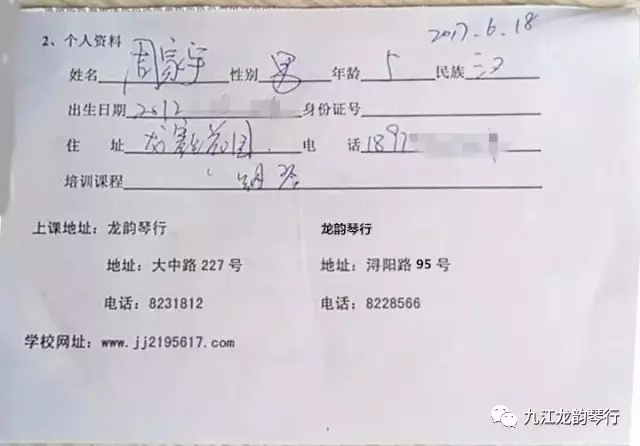 2017.6.18
2、个人资料
姓名 周家宇 性别 男 年龄 5 民族 汉
出生日期 2012 身份证号
住 址 龙 花园 电 话 189
培训课程 钢琴
上课地址：龙韵琴行 龙韵琴行
地址：大中路 227 号 地址：浔阳路 95 号
电话：8231812 电话：8228566
学校网址：www.jj2195617.com
九江龙韵琴行